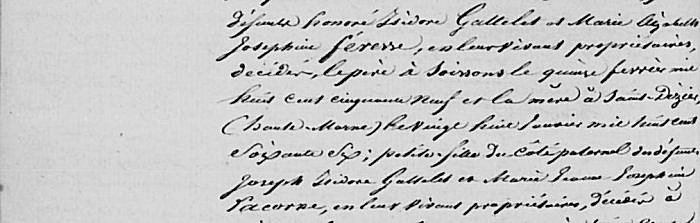 défunts honoré Isidore Gallelet et Marie Elizabeth
Joséphine Féresse, en leur vivant propriétaires,
décédés, le père à Soissons le quinze février mil
huit cent cinquante neuf et la mère à Saint-Dizier
(haute-Marne) le vingt huit Janvier mil huit cent
Soixante Six; petite-fille du côté paternel des défunts
Joseph Isidore Gallelet et Marie Jeanne Joséphine
Vacorne, en leur vivant propriétaires, décédés à